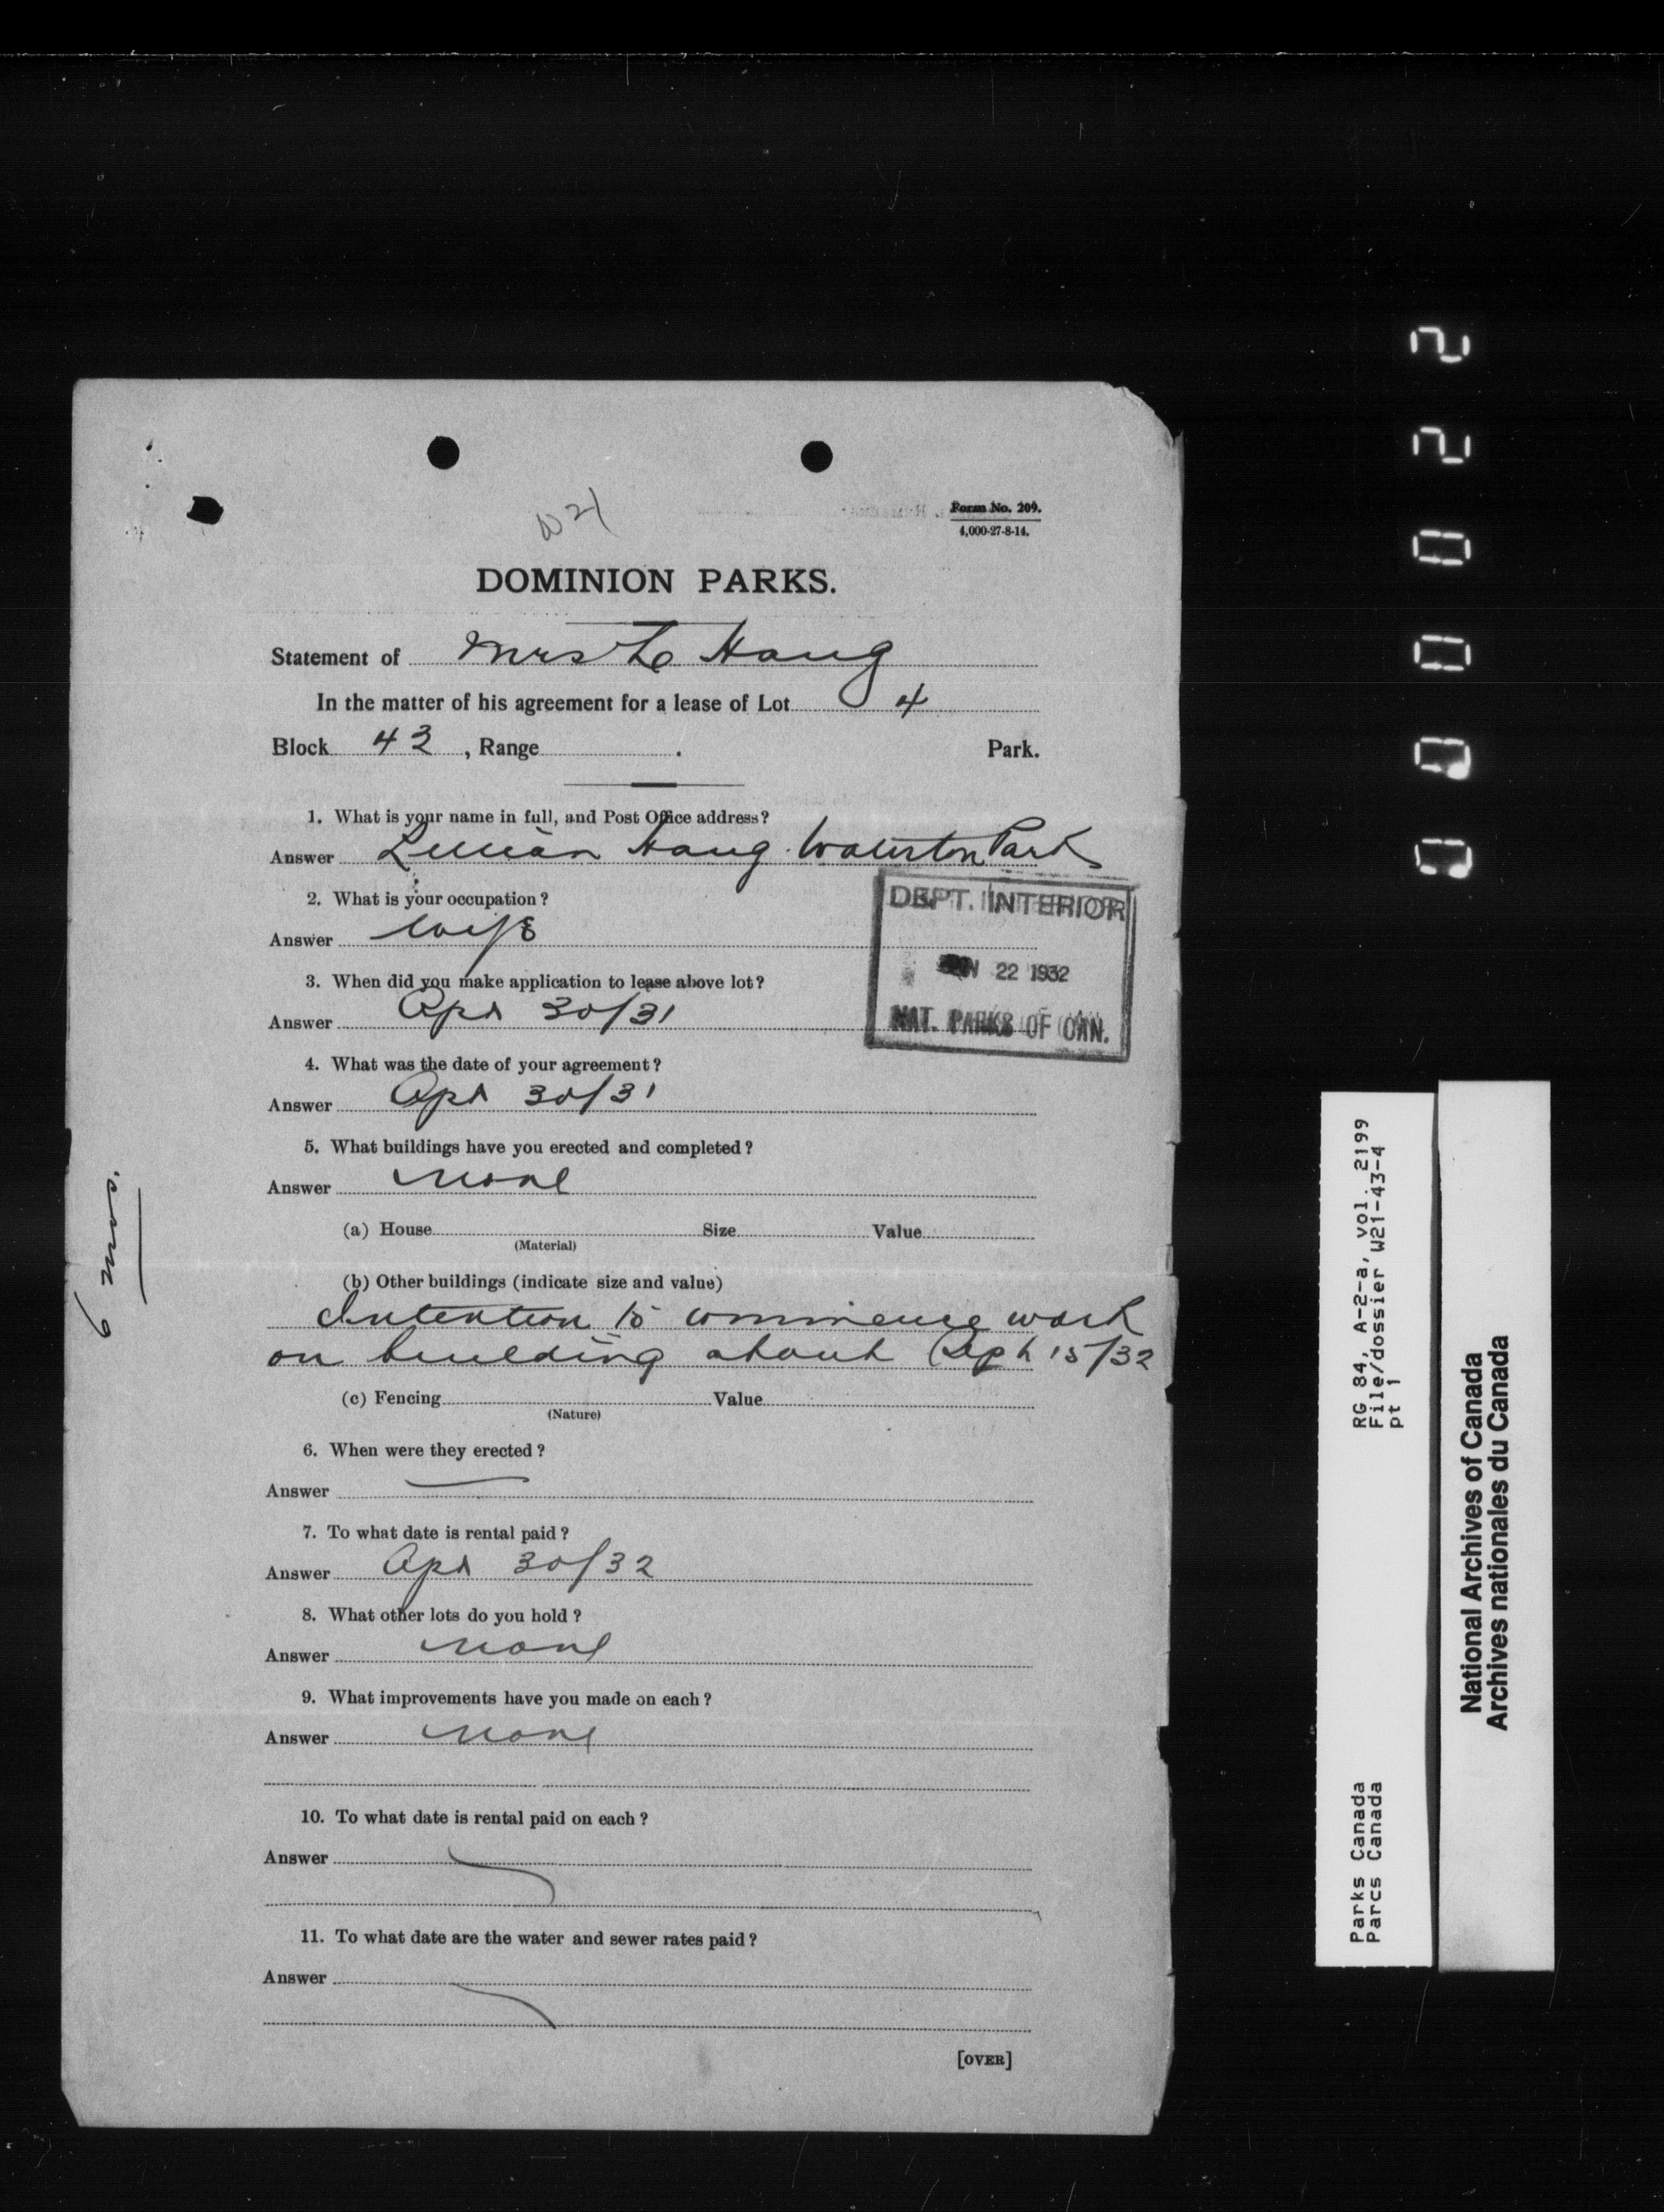 W21
Form No. 209.
4,000-27-8-14.
DOMINION PARKS.
Statement of Mrs L Haug
In the matter of his agreement for a lease of Lot 4
Block 43, Range . Park.
1. What is your name in full, and Post Office address?
Answer Lillian Haug Waterton Park
2. What is your occupation?
Answer wife
DEPT. INTERIOR
22 1932
NAT. PARKS OF CAN.
3. When did you make application to lease above lot?
Answer Apr 30/31
4. What was the date of your agreement?
Answer Apr 30/31
5. What buildings have you erected and completed?
Answer none
(a) House Size Value
(Material)
(b) Other buildings (indicate size and value)
Intention to commence work
on building about Sept 15/32
(c) Fencing Value
(Nature)
6. When were they erected?
Answer
7. To what date is rental paid?
Answer Apr 30/32
8. What other lots do you hold?
Answer none
9. What improvements have you made on each?
Answer none
10. To what date is rental paid on each?
Answer
11. To what date are the water and sewer rates paid?
Answer
[OVER]
6 mos.
RG 84, A-2-a, vol. 2199
File/dossier W21-43-4
pt 1
Parks Canada
Parcs Canada
National Archives of Canada
Archives nationales du Canada